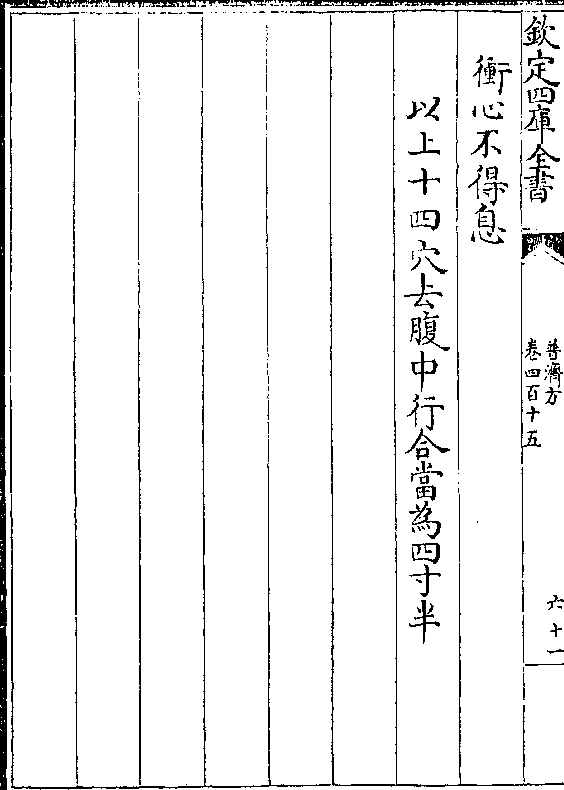 欽定四庫全書
普濟方
卷四百十五
六十一
衝心不得息
以上十四穴去腹中行合當為四寸半